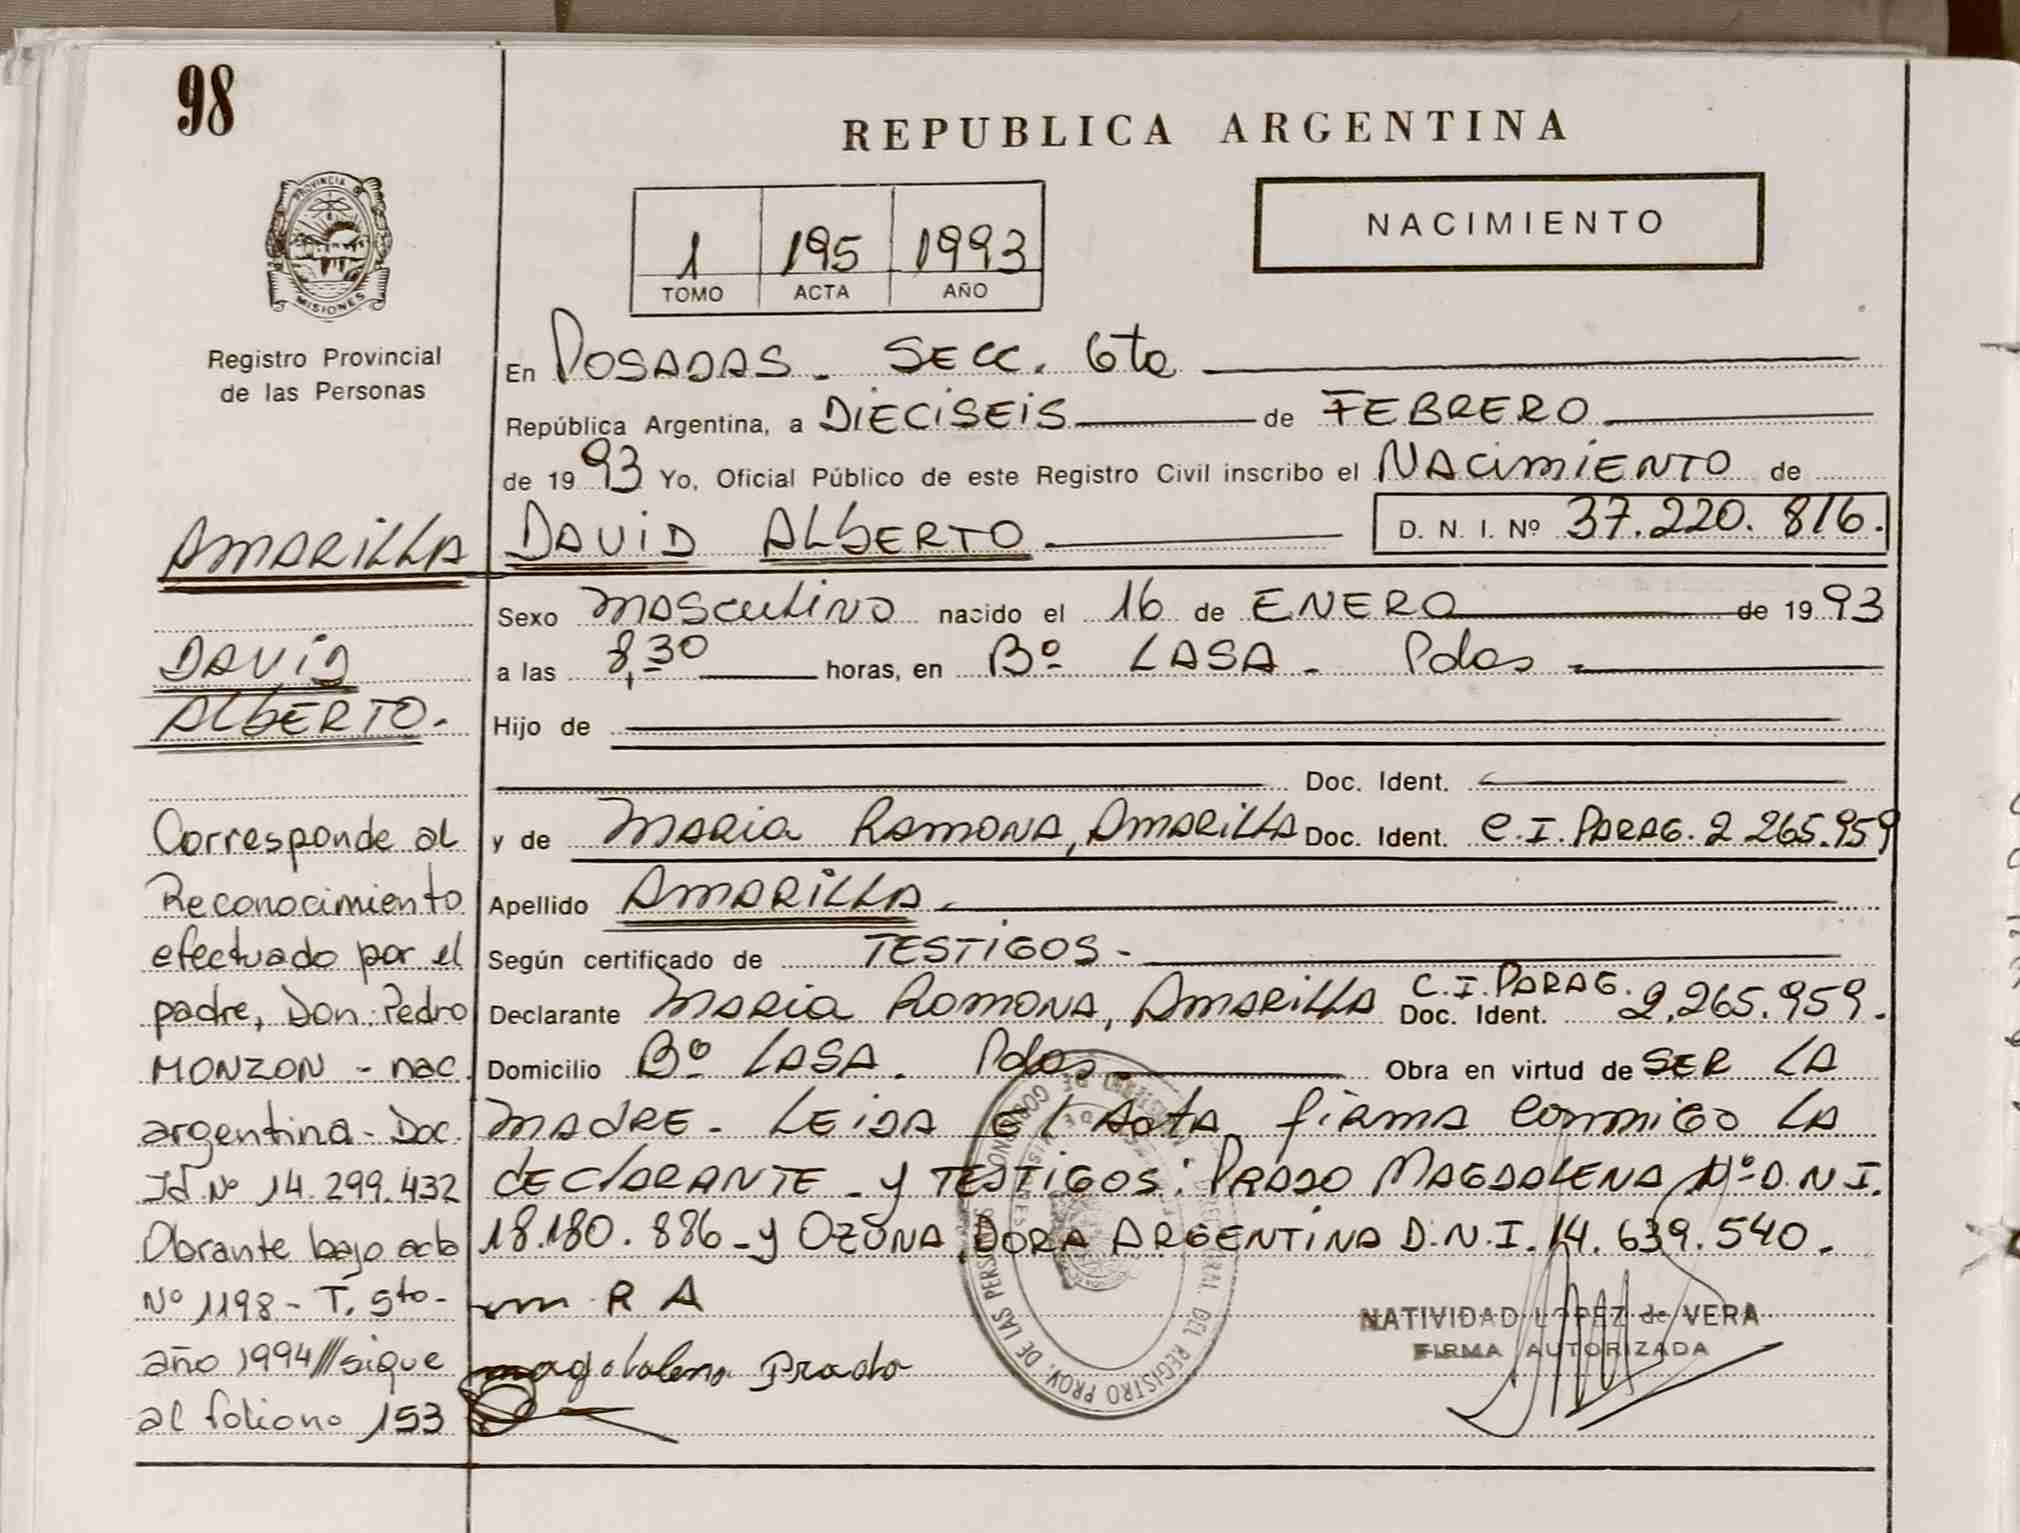 98
REPUBLICA ARGENTINA
PROVINCIA DE
MISIONES
1 195 1993
TOMO ACTA AÑO
NACIMIENTO
Registro Provincial
de las Personas
En POSADAS. SECC. 6ta
República Argentina, a DIECISEIS de FEBRERO
de 1993 Yo, Oficial Público de este Registro Civil inscribo el NACIMIENTO de
AMARILLA DAVID ALBERTO D. N. I. Nº 37.220.816.
Sexo MASCULINO nacido el 16 de ENERO de 1993
DAVID
a las 8,30 horas, en Bº LASA. Pdas
ALBERTO.
Hijo de
Doc. Ident.
y de MARIA RAMONA, AMARILLA Doc. Ident. C.I. PARAG. 2 265.959
Apellido AMARILLA.
Según certificado de TESTIGOS
Declarante MARIA RAMONA, AMARILLA Doc. Ident. C.I. PARAG. 2.265.959.
Domicilio Bº LASA. Pdas Obra en virtud de SER LA
MADRE. LEIDA el Acta firma conmigo LA
DECLARANTE y TESTIGOS: PRADO MAGDALENA Nº D.N.I.
18.180.886 y OZUNA, DORA ARGENTINA D.N.I. 14.639.540.
Corresponde al
Reconocimiento
efectuado por el
padre, Don Pedro
MONZON - nac.
argentina - Doc.
Id Nº 14.299.432
Obrante bajo acta
Nº 1198 - T. 5to -
año 1994 /// sigue
al folio no 153
m R A
magdalena Prado
NATIVIDAD LOPEZ de VERA
FIRMA AUTORIZADA
DEL REGISTRO PROV. DE LAS PERSONAS